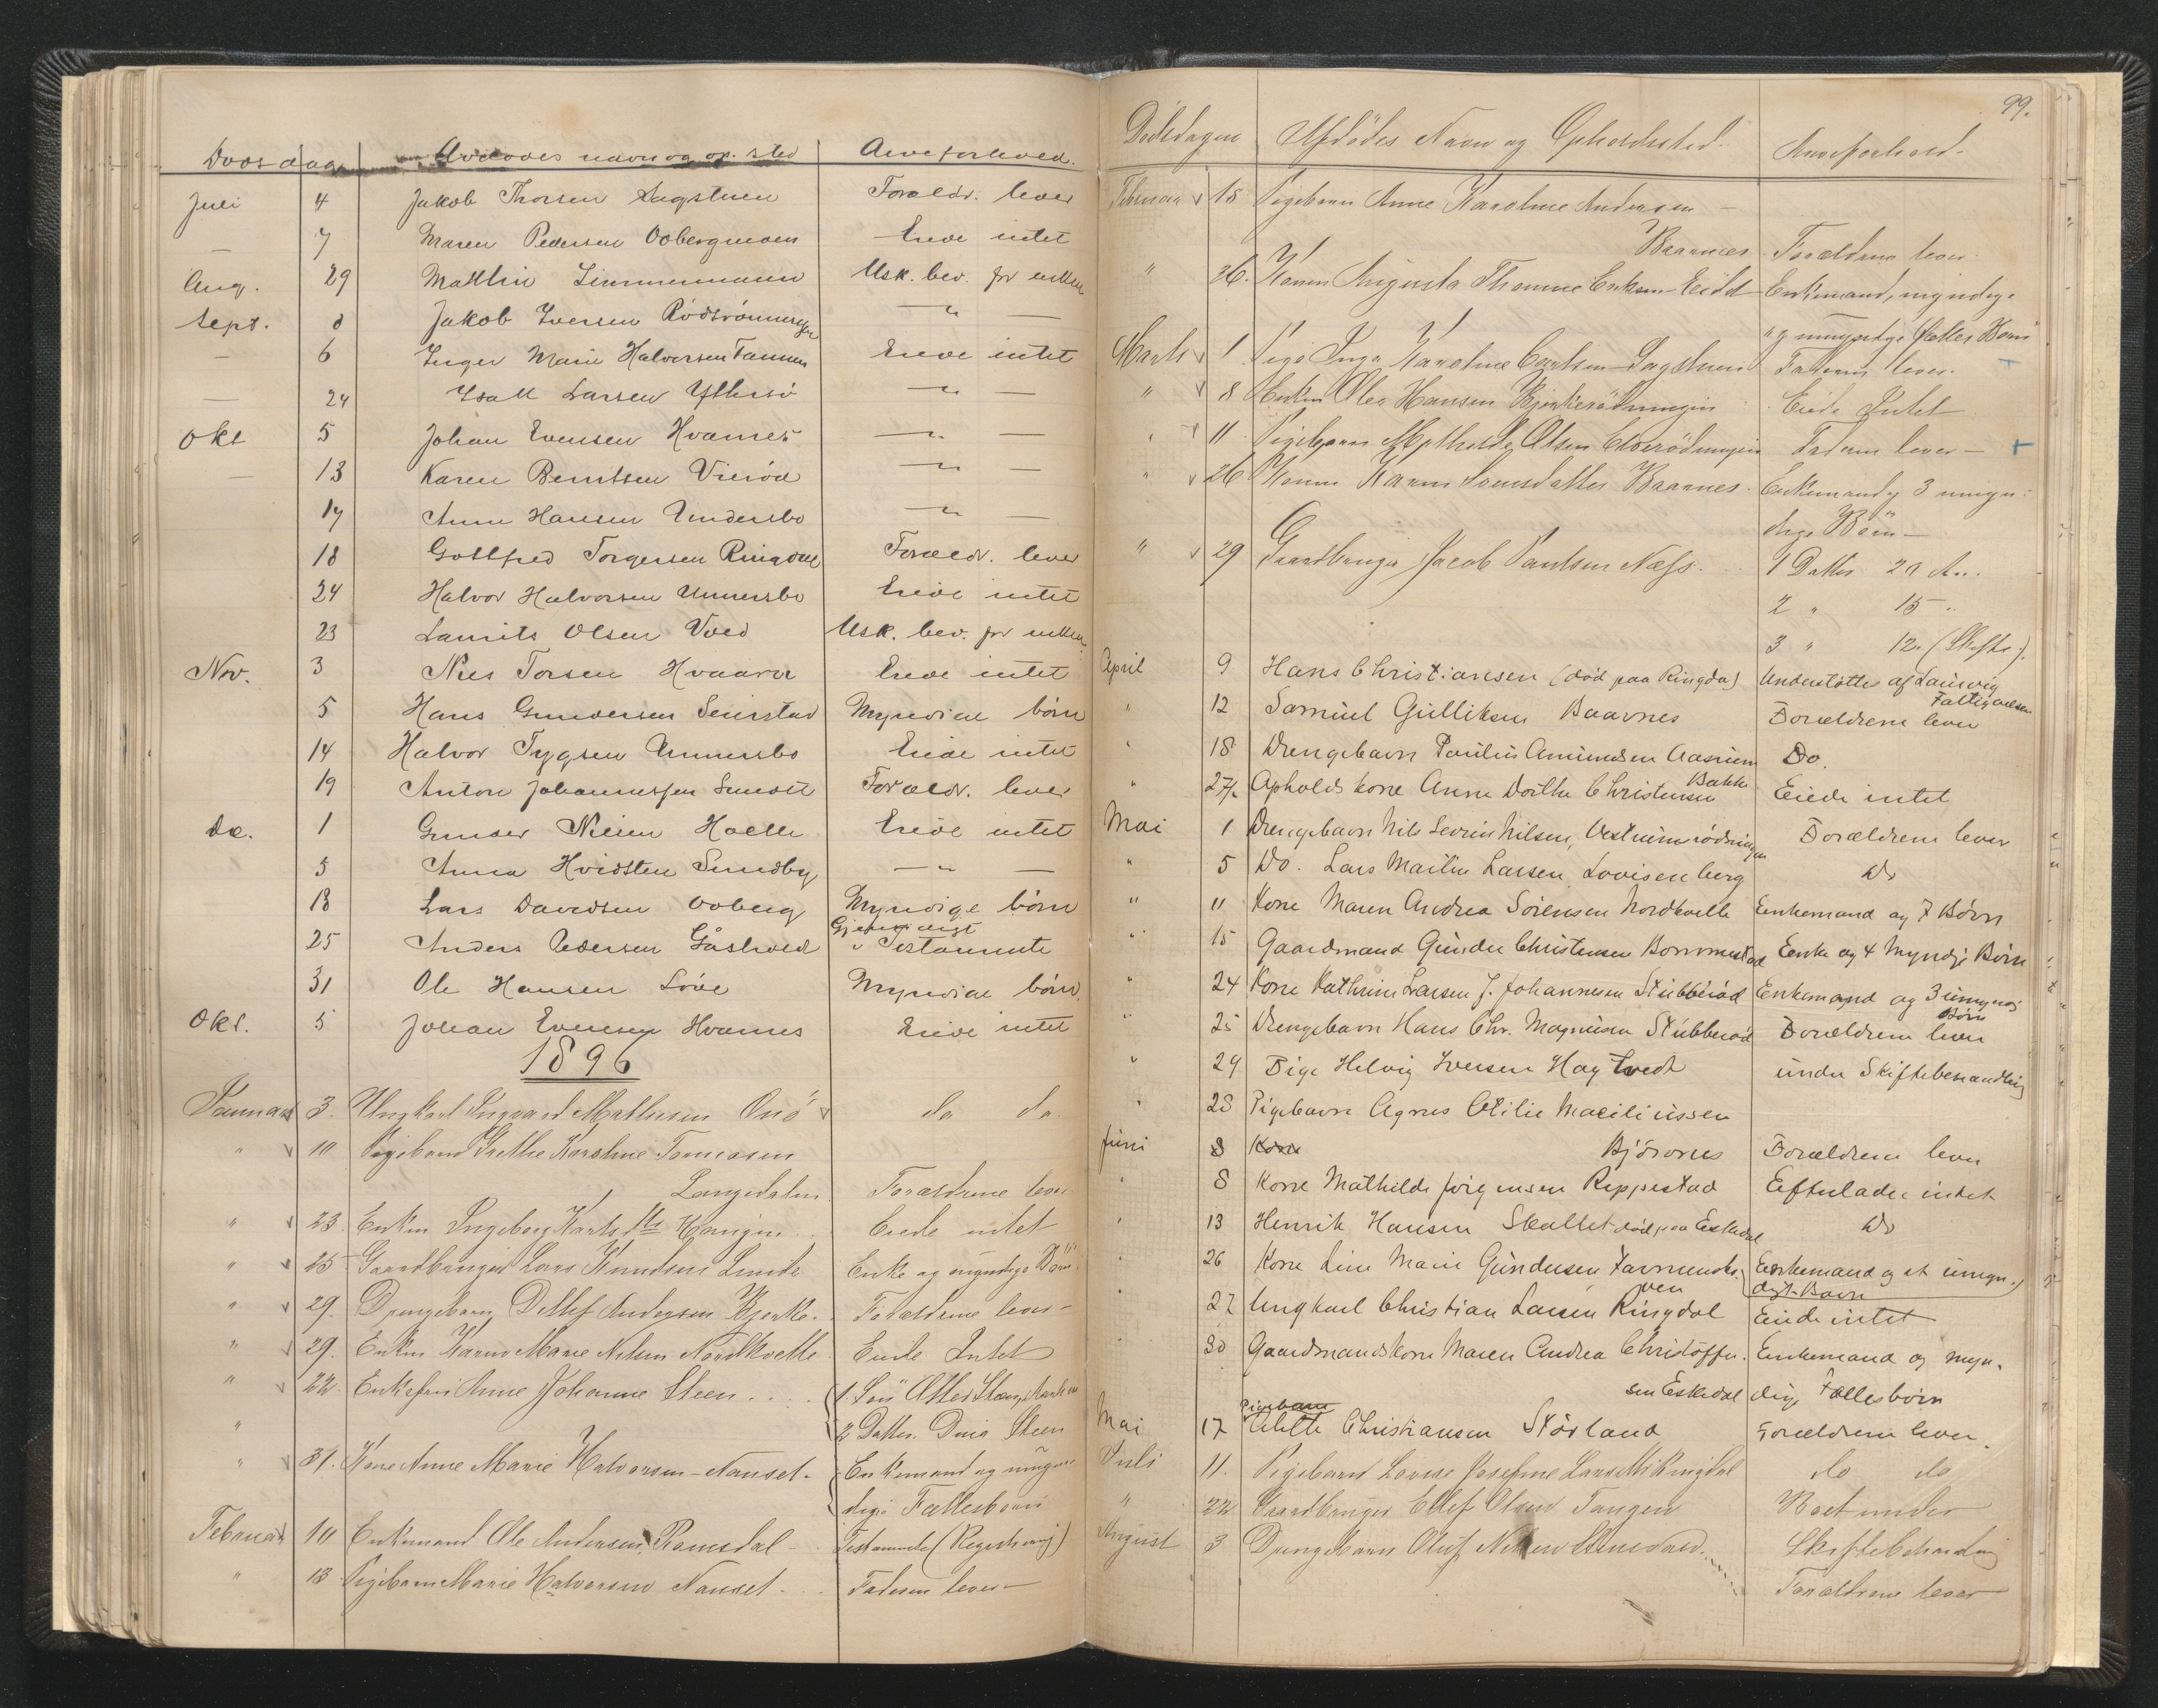 Dødsdag Afdødes navn og op. sted Arveforhold.
Juli 4 Jakob Thorsen Sagstuen Foreldr. lever
— 7 Maren Pedersen Vobergmoen Eiede intet
Aug. 29 Mathie Simmermann Usk. bev. for enken
Sept. 8 Jakob Iversen — " —
— 6 Inger Marie Halvorsen Eiede intet
— 24 Isak Larsen — " —
Okt 5 Johan Evensen Hvarnes — " —
— 13 Karen Berntsen Vierød — " —
17 Anne Hansen Undersbo — " —
18 Gottfred Torgersen Ringdal Foreldr. lever
24 Halvor Halvorsen Unnersbo Eiede intet
23 Laurits Olsen Vold Usk. bev. for enken
Nov. 3 Nils Torsen Hvaara Eiede intet
5 Hans Gundersen Seierstad Myndige børn
14 Halvor Tygesen Unnersbo Eiede intet
19 Anton Johannessen Foreldr. lever
De. 1 Gunder Nilsen Holte Eiede intet
5 Anna Hvidsten Sundby — " —
13 Lars Davidsen Voberg Myndige børn
25 Anders Pedersen Gåsholt Gjensidigt Testamente
31 Ole Hansen Løve Myndige børn
Okt. 5 Johan Evensen Hvarnes Eiede intet
1896
Januar 3. Ungkarl Ingvard Mathisen Onø do do.
" 10 Pigebarn Grethe Karoline Tomasen
Langedalen Forældrene lever
" 23. Enken Ingeborg Eiede intet
" 25 Gaardbruger Lars Knudsen Lunde Enke og myndige Børn
" 29. Drengebarn Detlef Andersen Bjerke. Forældrene lever —
" 29. Enken Karen Marie Nilsen Nordkvelle Eiede Intet
" 22. Enkefru Anne Johanne Steen... 1. Søn Steen,
" 2 Datter. Steen
" 31. Kone Anne Marie Halvorsen - Nanset. Enkemand og umyn-
dige Fællesbørn
Februar 10 Enkemand Ole Andersen Ramsdal — Testamente (Registrering)
" 13 Pigebarn Marie Halvorsen Nanset. Faderen lever —
99.
Dødsdagen Afdødes Navn og Opholdssted. Arveforhold.
Februar 18 Pigebarn Anne Karoline Andersen —
Baarnes Forældrene lever.
" 26. Konen Augusta Enkemand, myndige
og umyndige fælles Børn
Marts 1 Pige Inga Karoline Carlsen - Sagstuen Faderen lever.
" 8 Enken Hansen Bjerkerødningen Eiede Intet
" 11 Pigebarn Mathilde Olsen Faderen lever —
" 26 Konen Karen Svensdatter Baarnes. Enkemand og 3 umyn-
dige Børn —
" 29 Gaardbruger Jacob Paulsen Næss. 1 Datter 20 A..
2 " 15 "
3 " 12 " (Skifte).
April 9 Hans Christiansen (død paa Ringdal) Understøttes af Laurvig
Fattigvæsen
" 12 Samuel Gulliksen Baarnes Forældrene lever
" 18 Drengebarn Paulus Amundsen Aasrum Do.
" 27 Opholdskone Anne Dorthe Christensen Bakke Eiede intet
Mai 1 Drengebarn Nils Severin Nilsen, Vestrumrødningen Forældrene lever
" 5 Do. Lars Martin Larsen Lovisenberg Do
" 11 Kone Maren Andrea Sørensen Nordkvelle Enkemand og 7 Børn
" 15 Gaardmand Gunder Christensen Bommestad Enke og 4 Myndige Børn
" 24 Kone Kathrine Larsen f. Johannesen Stubberød Enkemand og 3 umyndige
Børn
" 25 Drengebarn Hans Chr. Magnusen Stubberød Forældrene lever
" 29 Pige Helvig Iversen Hagtvedt under Skiftebehandling
" 28 Pigebarn Agnes Otilie Maciliussen
Juni 8 Kone Bjørnnes Forældrene lever
" 8 Kone Mathilde Jørgensen Reppestad Efterlader intet
" 13 Henrik Hansen Skallet død paa Eskedal Do
" 26 Kone Line Marie Gundersen Enkemand og et umyn-
digt Barn
" 27 Ungkarl Christian Larsen Ringdal Eiede intet
" 30 Gaardmandskone Maren Andrea Christoffer- Enkemand og myn-
sen Eskedal dige Fællesbørn
Mai 17 Pigebarn Alette Christiansen Størland Forældrene lever.
Juli 11. Pigebarn Lovise Josefine Larsen Ringdal do do
" 22 Gaardbruger Ellef Olsen Tangen Boet under
August 3 Drengebarn Oluf Nilsen Skiftebehandling
Forældrene lever